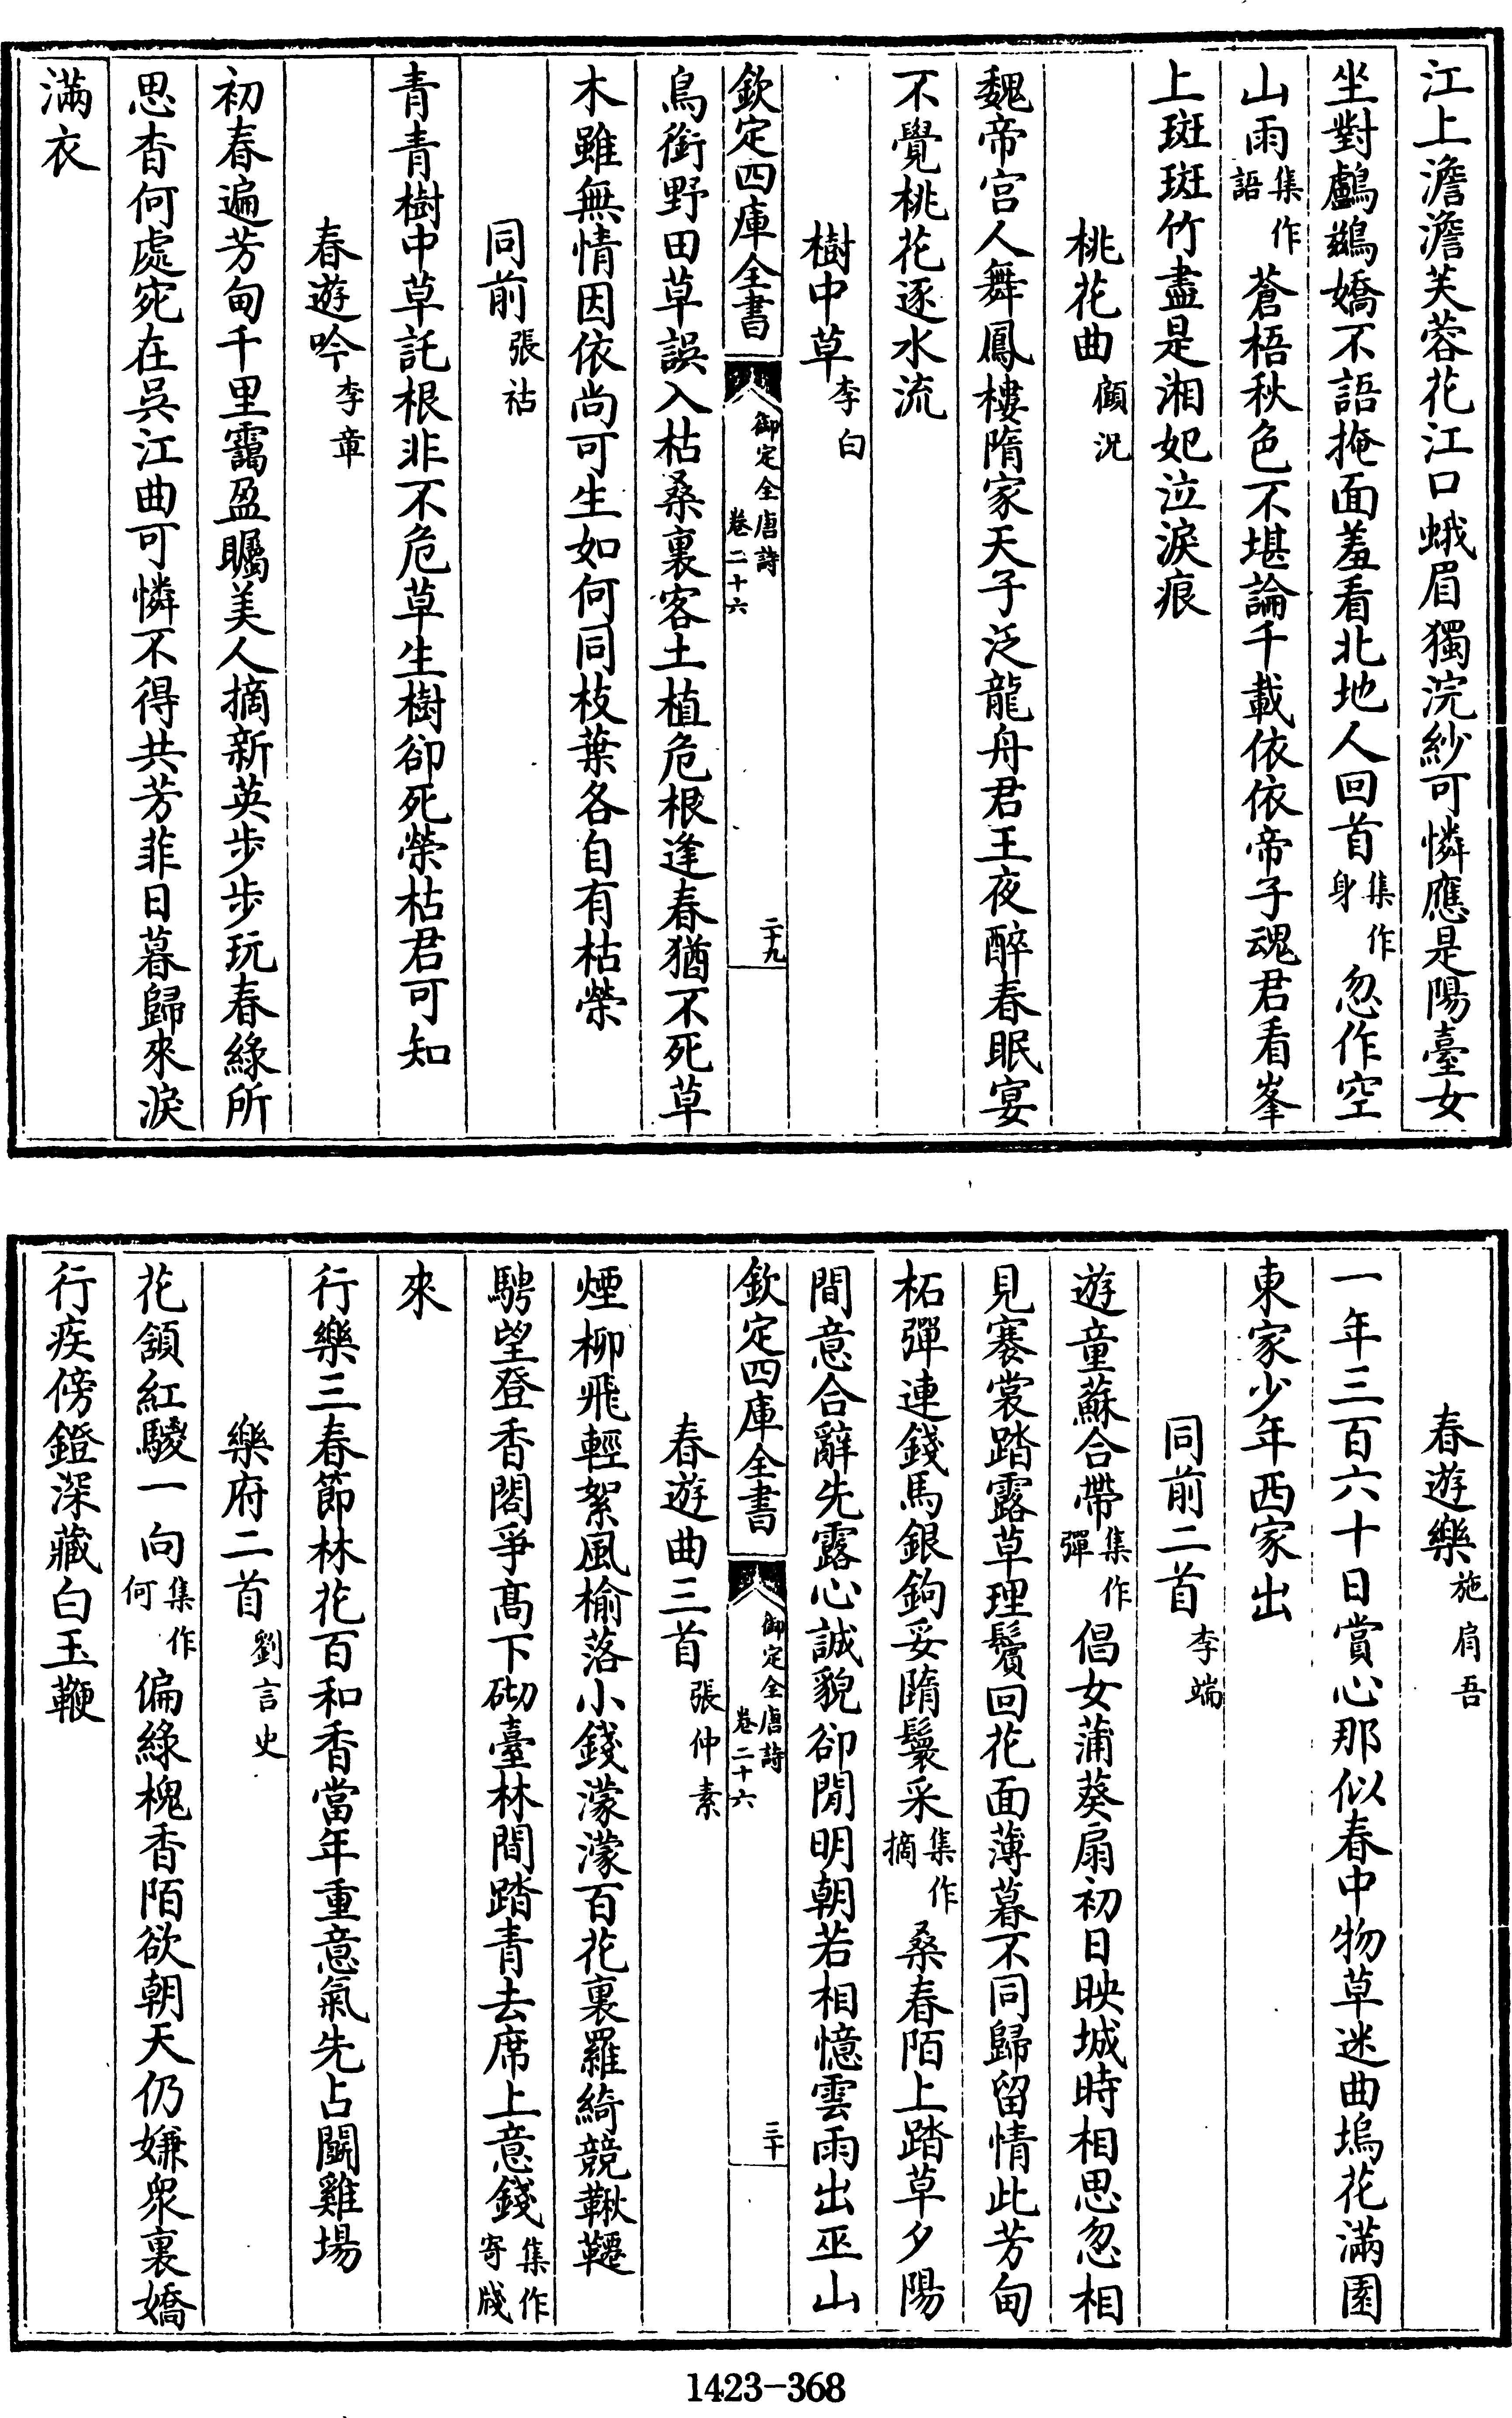 江上澹澹芙蓉花江口蛾眉獨浣紗可憐應是陽臺女
坐對鸕鷀嬌不語掩面羞看北地人回首集作身忽作空
山雨集作語蒼梧秋色不堪論千載依依帝子魂君看峯
上斑斑竹盡是湘妃泣淚痕
桃花曲顧況
魏帝宮人舞鳳樓隋家天子泛龍舟君王夜醉春眠宴
不覺桃花逐水流
樹中草李白
欽定四庫全書 御定全唐詩卷二十六 二十九
鳥銜野田草誤入枯桑裏客土植危根逢春猶不死草
木雖無情因依尚可生如何同枝葉各自有枯榮
同前張祜
青青樹中草託根非不危草生樹卻死榮枯君可知
春遊吟李章
初春遍芳甸千里靄盈矚美人摘新英步步玩春綠所
思杳何處宛在吳江曲可憐不得共芳菲日暮歸來淚
滿衣
春遊樂施肩吾
一年三百六十日賞心那似春中物草迷曲塢花滿園
東家少年西家出
同前二首李端
遊童蘇合帶集作彈倡女蒲葵扇初日映城時相思忽相
見褰裳踏露草理鬢回花面薄暮不同歸留情此芳甸
柘彈連錢馬銀鉤妥隋鬟采集作摘桑春陌上踏草夕陽
間意合辭先露心誠貌卻閒明朝若相憶雲雨出巫山
欽定四庫全書 御定全唐詩卷二十六 三十
春遊曲三首張仲素
煙柳飛輕絮風榆落小錢濛濛百花裏羅綺競鞦韆
騁望登香閣爭高下砌臺林間踏青去席上意錢集作寄牋
來
行樂三春節林花百和香當年重意氣先占鬭雞場
樂府二首劉言史
花頷紅騣一向集作何偏綠槐香陌欲朝天仍嫌眾裏嬌
行疾傍鐙深藏白玉鞭
1423-368